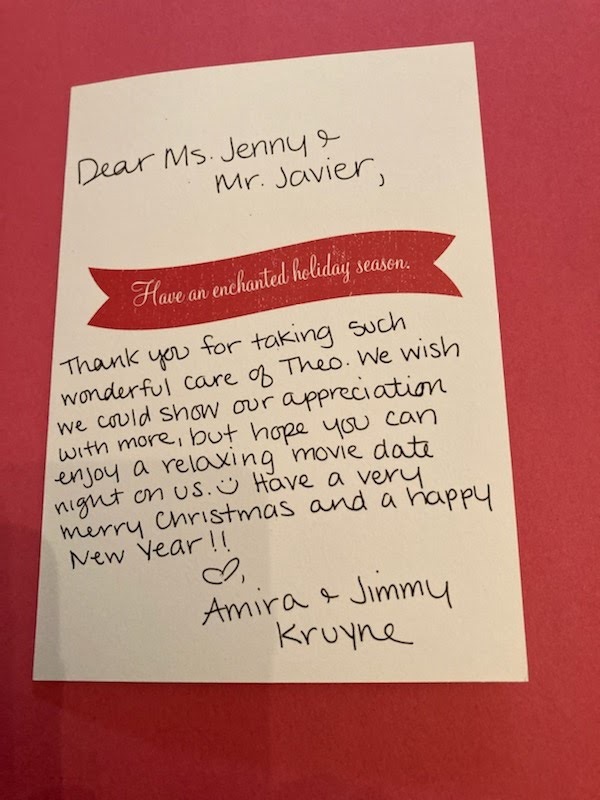 Dear Ms. Jenny &
Mr. Javier,
Have an enchanted holiday season.
Thank you for taking such
wonderful care of Theo. We wish
we could show our appreciation
with more, but hope you can
enjoy a relaxing movie date
night on us. ☺ Have a very
merry Christmas and a happy
New Year!!
♡,
Amira & Jimmy
Kruyne